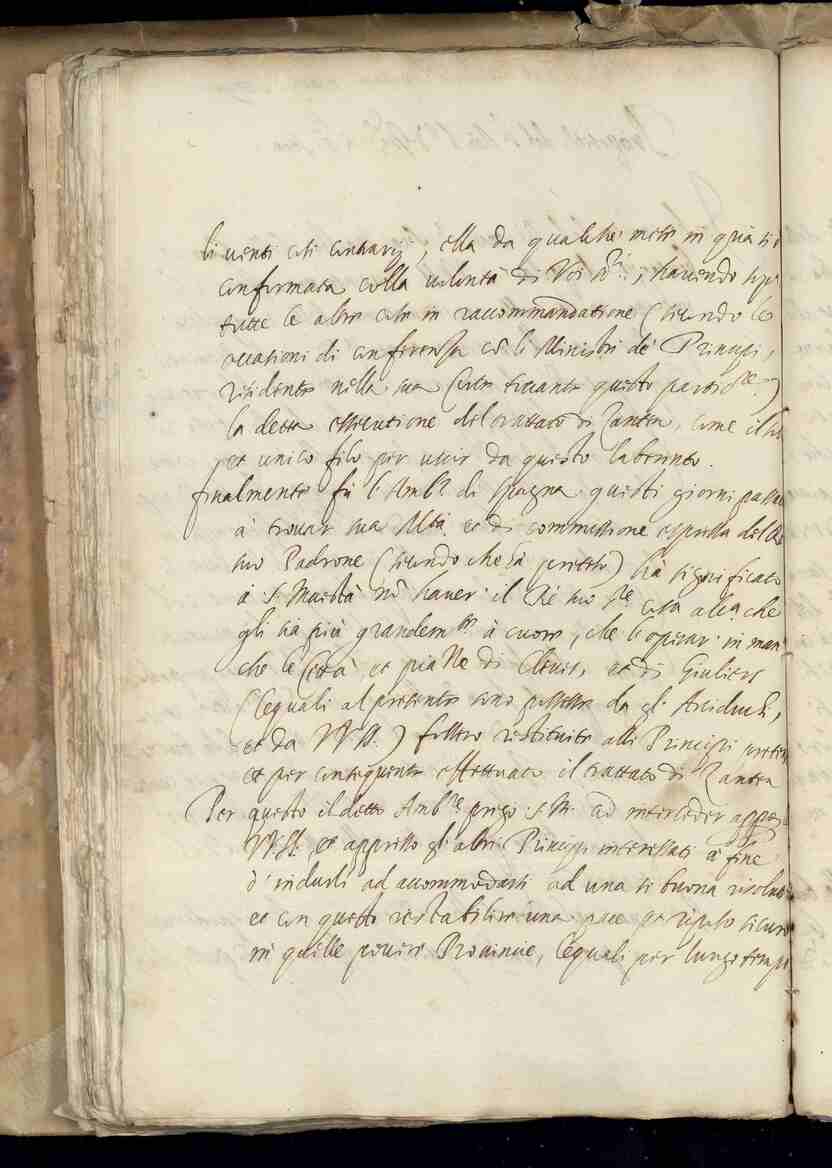 li venti così contrarij, ella da qualche mese in quà si è
confirmata colla volontà di Voi Sri., havendo sop.
tutte le altre cose in raccommandatione (secondo le
occasioni di conferenza cō li Ministri de Principi,
residenti nella sua Corte toccante questo partic.re)
la detta essecutione del trattato di Zanten, come il
et unico filo per uscir da questo laberinto.
finalmente fù l'Amb.r di Spagna questi giorni passati
à trovar sua M.tà et di commissione espressa del Rè
suo Padrone (secondo che si pretese) hà significato
à S. Maestà nō haver il Rè suo S.re cosa alc.a che
gli sia più grandem.te à cuore, che l'operar in man
che le Città et piazze di Cleves, et di Giuliers
(lequali al presente sono possesse da gl' Arciduchi,
et da VV.SS.) fossero restituite alli Principi preten
et per consequente effettuato il trattato di Zanten
Per questo il detto Amb.re prego S.M. ad interceder appres
VV.SS. et appresso gl' altri Principi interessati à fine
d'indurli ad accommodarsi ad una si buona risolut
et con questo restabilire una pace et riposo sicuro
in quelle povere Provincie, lequali per lungo tempo